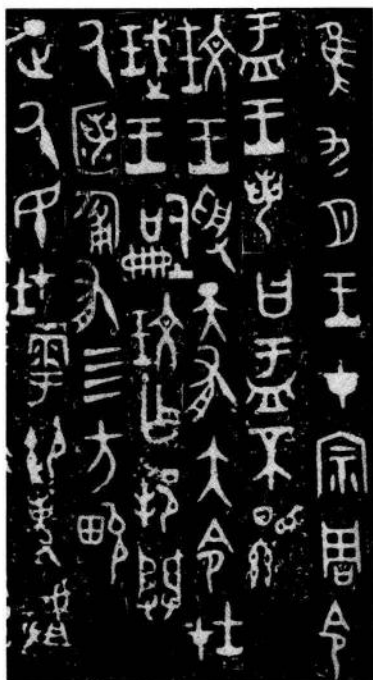 隹九月王才宗周令
盂王若曰盂不顯
玟王受天有大令在
珷王嗣玟乍邦闢
厥匿匍有四方畯
正厥民在雩御事